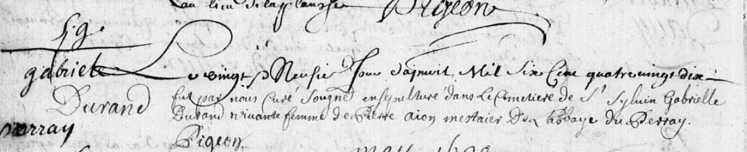 Pigeon
Sg.
gabriele
Durand
perray
Le vingt & Neufie Jour d'apvuril Mil Six Cent quatre vingt dix
fut par nous Curé Sousigné ensepulturé dans le Cemetiere de St Sylvin Gabrielle
Durand vivante femme de Pierre aion mestaier De l'abbaye du Perray.
Pigeon